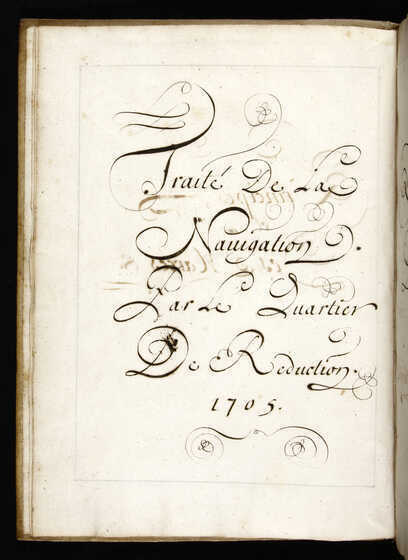 Traité De La
Navigation
Par Le Quartier
De Reduction.
1705.